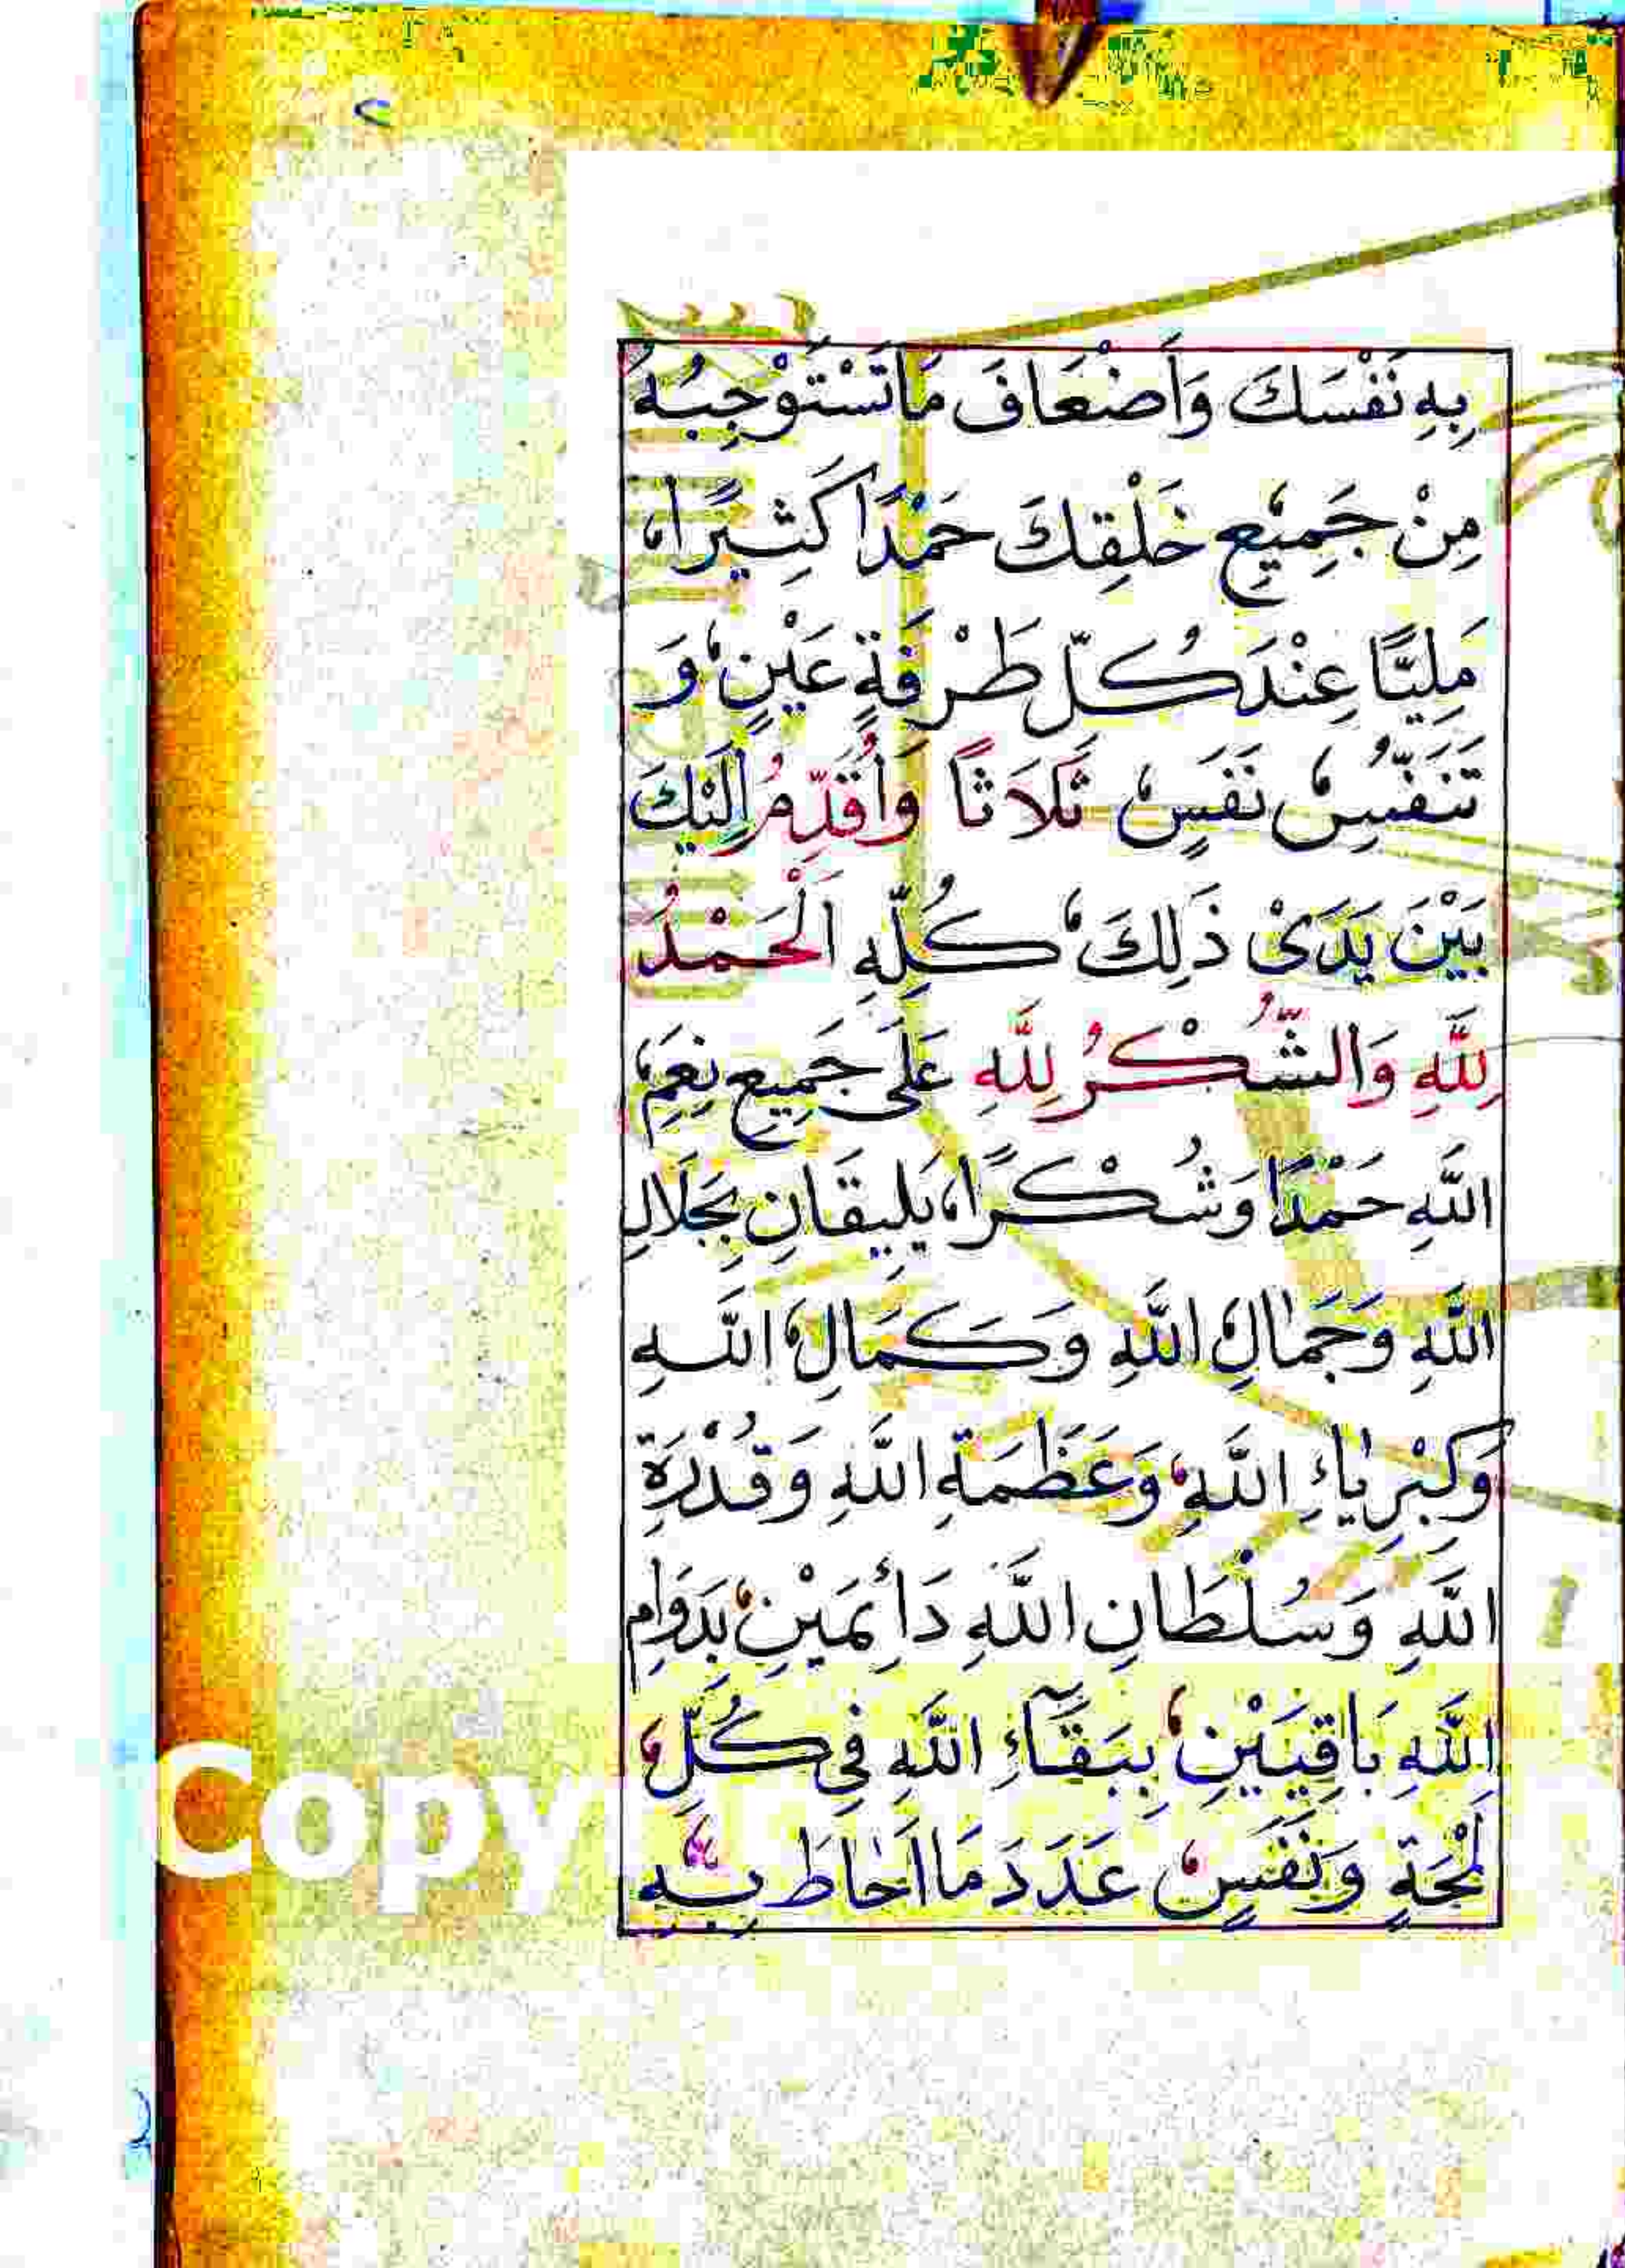 بِهِ نَفْسَكَ وَاَضْعَافَ مَاتَسْتَوْجِبُهُ
مِنْ جَمِيْعِ خَلْقِكَ حَمْدًا كَثِيْرًا
مَلِيًّا عِنْدَ كُلِّ طَرْفَةِ عَيْنٍ وَ
تَنَفُّسِ نَفَسٍ ثَلَاثًا وَاُقَدِّمُ اِلَيْكَ
بَيْنَ يَدَىْ ذَلِكَ كُلِّهِ اَلْحَمْدُ
لِلّٰهِ وَالشُّكْرُ لِلّٰهِ عَلَى جَمِيعِ نِعَمِ
اللّٰهِ حَمْدًا وَشُكْرًا يَلِيقَانِ بِجَلَالِ
اللّٰهِ وَجَمَالِ اللّٰهِ وَكَمَالِ اللّٰهِ
وَكِبْرِيَاءِ اللّٰهِ وَعَظَمَةِ اللّٰهِ وَقُدْرَةِ
اللّٰهِ وَسُلْطَانِ اللّٰهِ دَائِمَيْنِ بِدَوَامِ
اللّٰهِ بَاقِيَيْنِ بِبَقَآءِ اللّٰهِ فِي كُلِّ
لَمْحَةٍ وَنَفَسٍ عَدَدَ مَا اَحَاطَ بِهِ
Copy